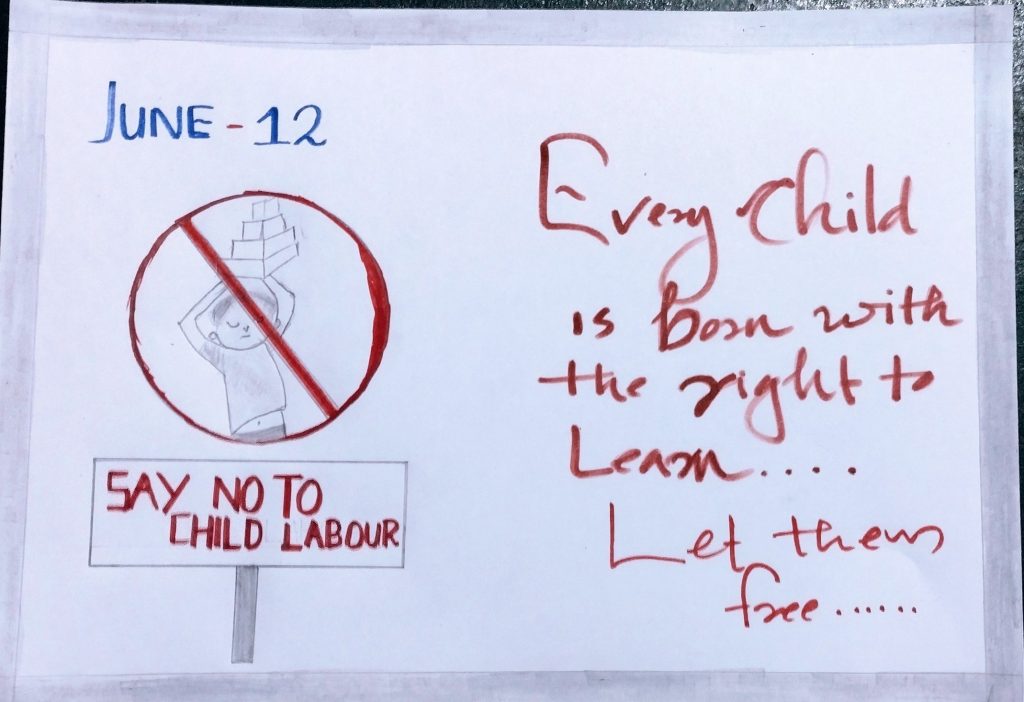 JUNE - 12
SAY NO TO
CHILD LABOUR
Every Child
is Born with
the right to
Learn....
Let them
free......